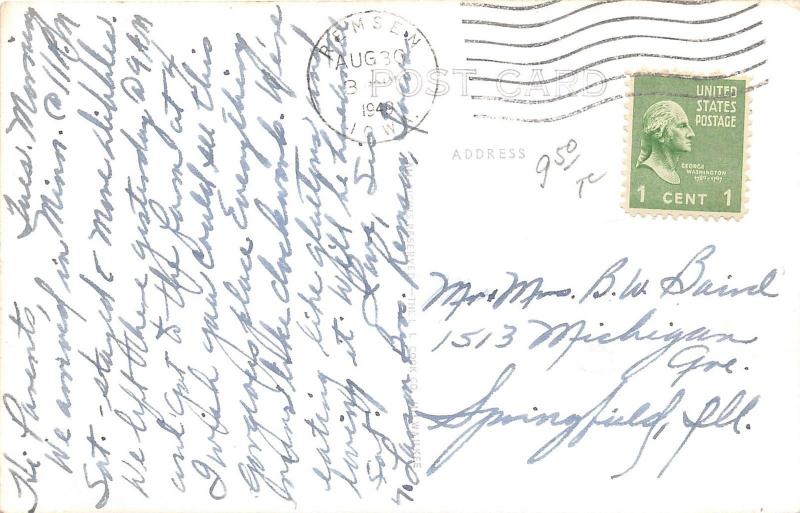 Tues. Morning
Hi Parents,
We arrived in Minn. @ 11 P.M
Sat. - stayed &
We left there yesterday @ 9 A.M
and got to the farm at 4
I wish you could see this
gorgeous place. Everything
like clockwork. We're
eating like gluttons and
loving it. Will be home
Sat. Love,
% Larson Bros. Remsen, Iowa
REMSEN
AUG 30
3
1949
IOWA
POST CARD
ADDRESS
9 50
TC
UNITED
STATES
POSTAGE
GEORGE
WASHINGTON
1789-1797
1 CENT 1
Mr. & Mrs. B. W. Baird
1513 Michigan
Ave.
Springfield, Ill.